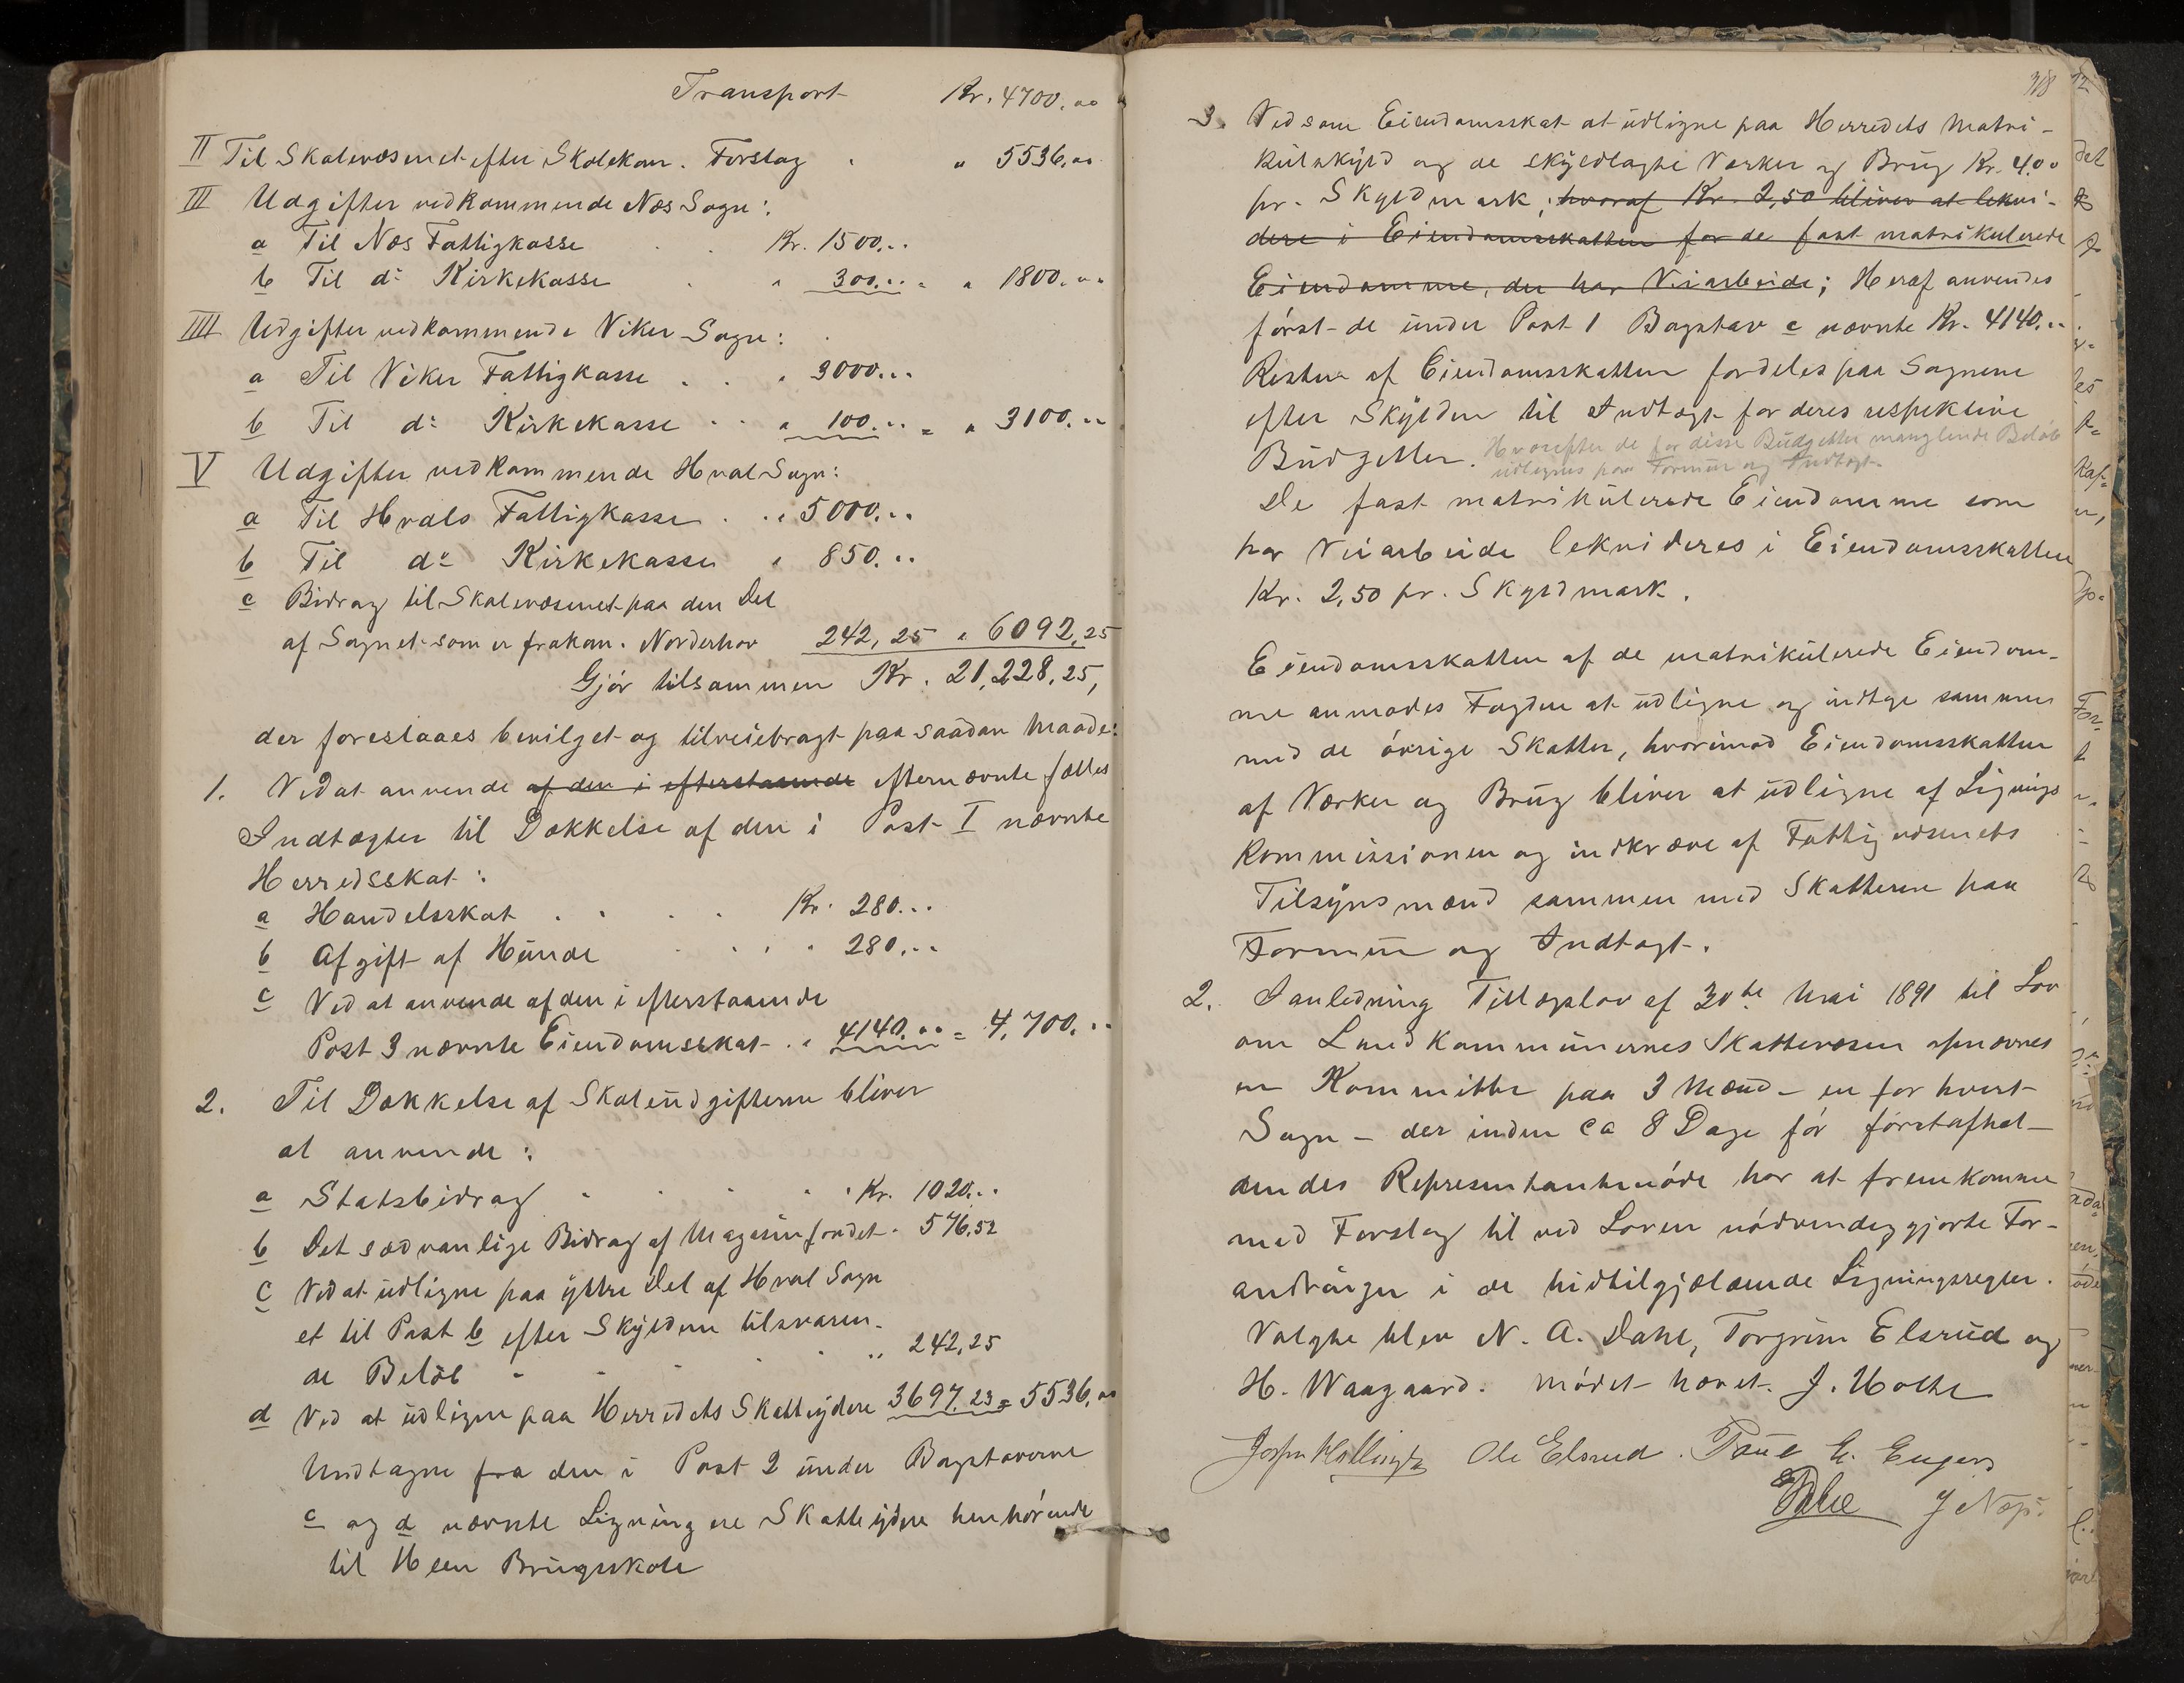 Transport Kr. 4700.00
II Til Skolevæsenet efter Skolekom. Forslag " 5536,00
III Udgifter vedkommende Næs Sogn:
a Til Næs Fattigkasse Kr. 1500...
b Til do Kirkekasse " 300... = " 1800...
IIII Udgifter vedkommende Viker Sogn:
a Til Viker Fattigkasse . . " 3000...
b Til do Kirkekasse . . " 100... = " 3100...
V Udgifter vedkommende Hval Sogn:
a Til Hvals Fattigkasse . . " 5000...
b Til do Kirkekasse " 850...
c Bidrag til Skolevæsenet paa den Del
af Sognet som er frakom. Norderhov 242,25 " 6092,25
Gjør tilsammen Kr. 21,228,25,
der foreslaaes bevilget og tilveiebragt paa saadan Maade:
1. Ved at anvende af den i efterstaaende efternævnte fælles
Indtægter til Dækkelse af den i Post I nævnte
Herredsskat:
a Handelsskat . . . . Kr. 280...
b Afgift af Hunde . . . " 280...
c Ved at anvende af den i efterstaaende
Post 3 nævnte Eiendomsskat . " 4140... = 4,700...
2. Til Dækkelse af Skoleudgifterne bliver
at anvende:
a Statsbidrag . . . . Kr. 1020...
b Det sædvanlige Bidrag af Magasinfondet " 576,52
c Ved at udligne paa ydre Del af Hval Sogn
et til Post b efter Skylden tilsvaren-
de Beløb - - - - " 242,25
d Ved at udligne paa Herredets Skatteydere 3697,23 = 5536,00
Undtagne fra den i Post 2 under Bogstaverne
c og d nævnte Ligning ere Skatteydere henhørende
til Heen Brugsskole
318
3. Ved som Eiendomsskat at udligne paa Herredets Matri-
kulskyld og de skyldlagte Værker og Brug Kr. 4,00
pr. Skyldmark; hvoraf Kr. 2,50 bliver at lekvi-
dere i Eiendomsskatten for de fast matrikulerede
Eiendomme, der har Veiarbeide; Heraf anvendes
først de under Post 1 Bogstav c nævnte Kr. 4140...
Resten af Eiendomsskatten fordeles paa Sognene
efter Skylden til Indtægt for deres respektive
Budgetter. Hvorefter de for disse Budgetter manglende Beløb
udlignes paa Formue og Indtægt.
De fast matrikulerede Eiendomme som
har Veiarbeide lekvideres i Eiendomsskatten
Kr. 2,50 pr. Skyldmark.
Eiendomsskatten af de matrikulerede Eiendom-
me anmodes Fogden at udligne og indtage sammen
med de øvrige Skatter, hvorimod Eiendomsskatten
af Værker og Brug bliver at udligne af Lignings
kommissionen og indkræve af Fattigvæsenets
Tilsynsmænd sammen med Skatterne paa
Formue og Indtægt.
2. I anledning Tillægslov af 30te Mai 1891 til Lov
om Landkommunernes Skattevæsen opnævnes
en Kommitte paa 3 Mænd - en for hvert
Sogn - der inden ca 8 Dage før førstafhol-
dendes Representantmøde har at fremkomme
med Forslag til ved Loven nødvendiggjorte For-
andringer i de hidtilgjældende Ligningsregler.
Valgte blev N. A. Dahl, Torgrim Elsrud og
H. Waagaard. Mødet hævet. J. Holte
Ole Elsrud. Poul E.